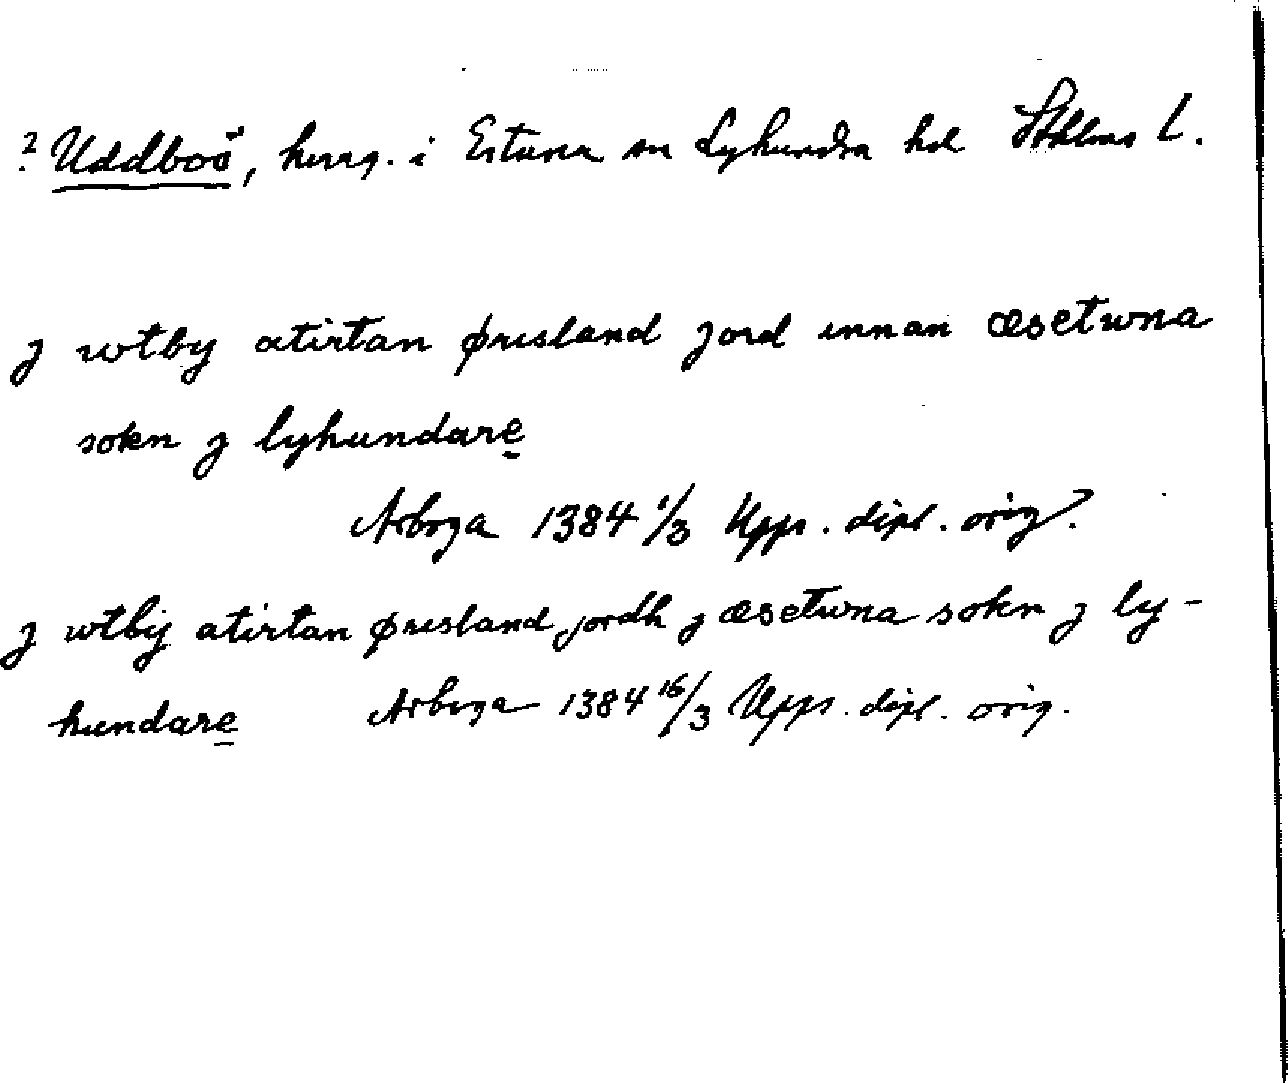 ? Uddboö, herrg. i Estuna sn Lyhundra hd Sthlms L.
j wtby atirtan øresland jord innan æsetwna
sokn j lyhundare
Arboga 1384 1/3 Upps. dipl. orig.
j wtby atirtan øresland jordh j æsetwna sokn j ly-
hundare Arboga 1384 16/3 Upps. dipl. orig.